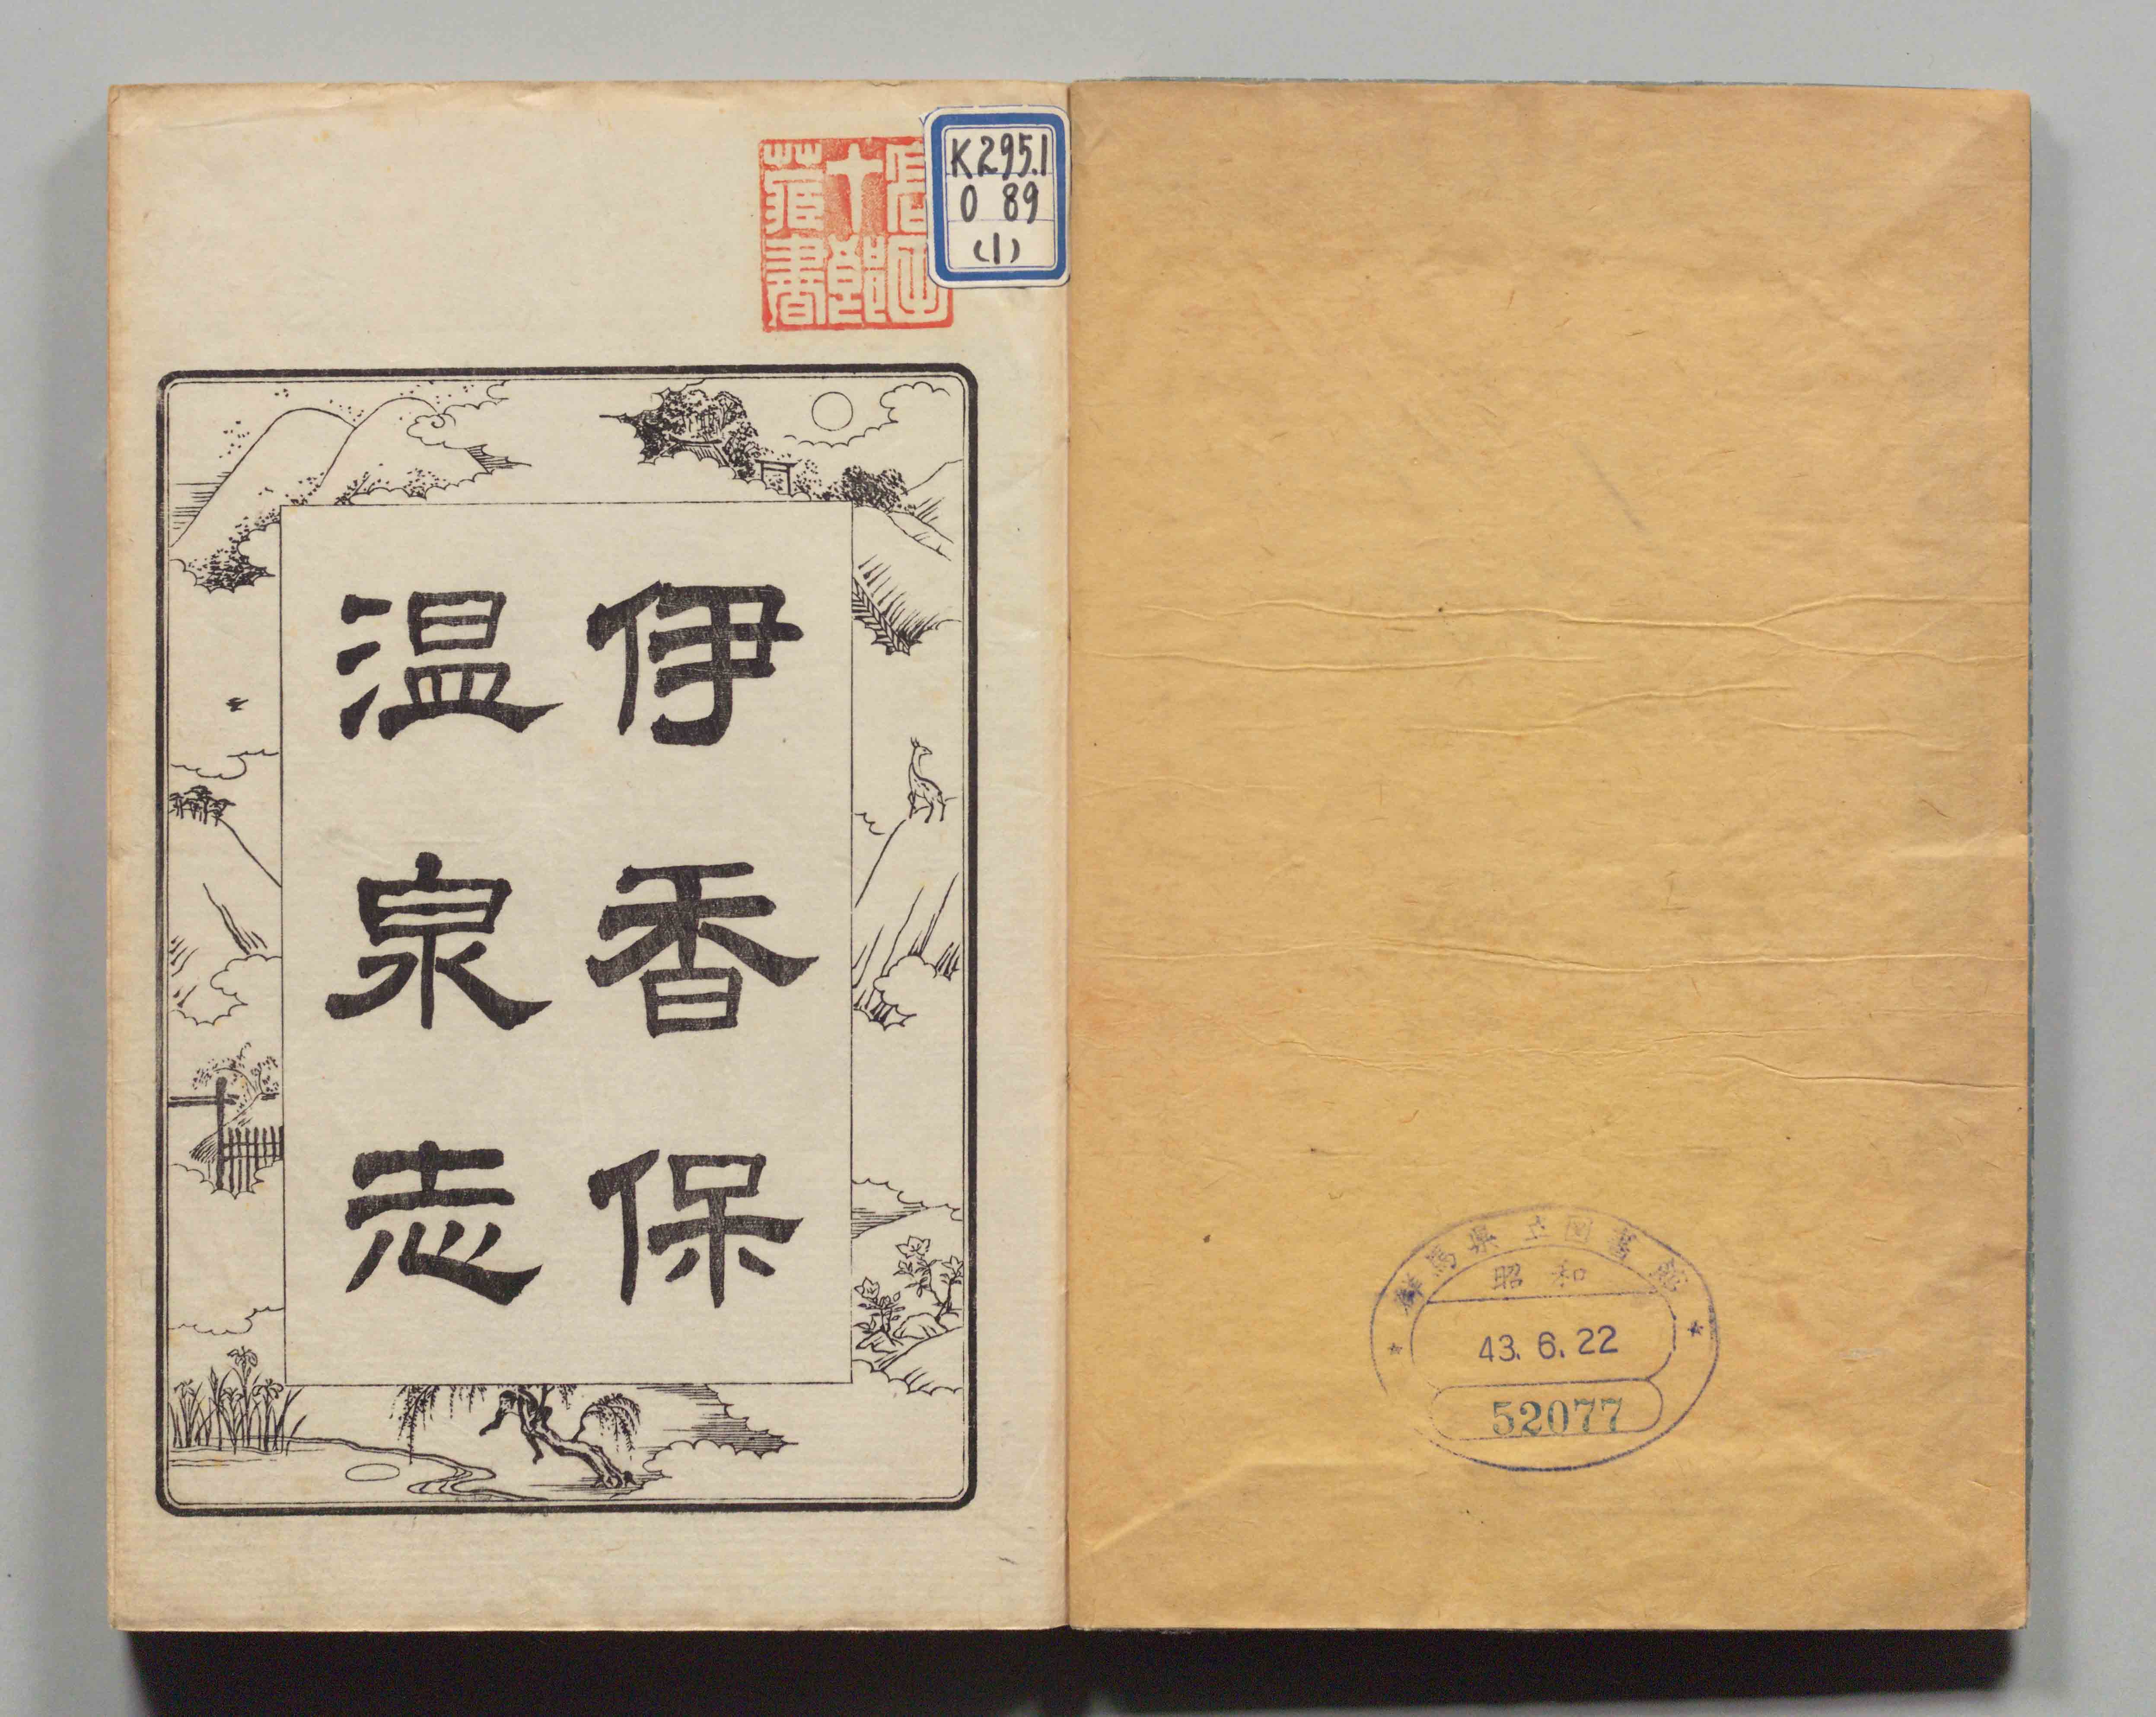 伊香保
温泉志
K295.1
0 89
(1)
十郎
蔵書
群馬県立図書館
昭和
43.6.22
52077